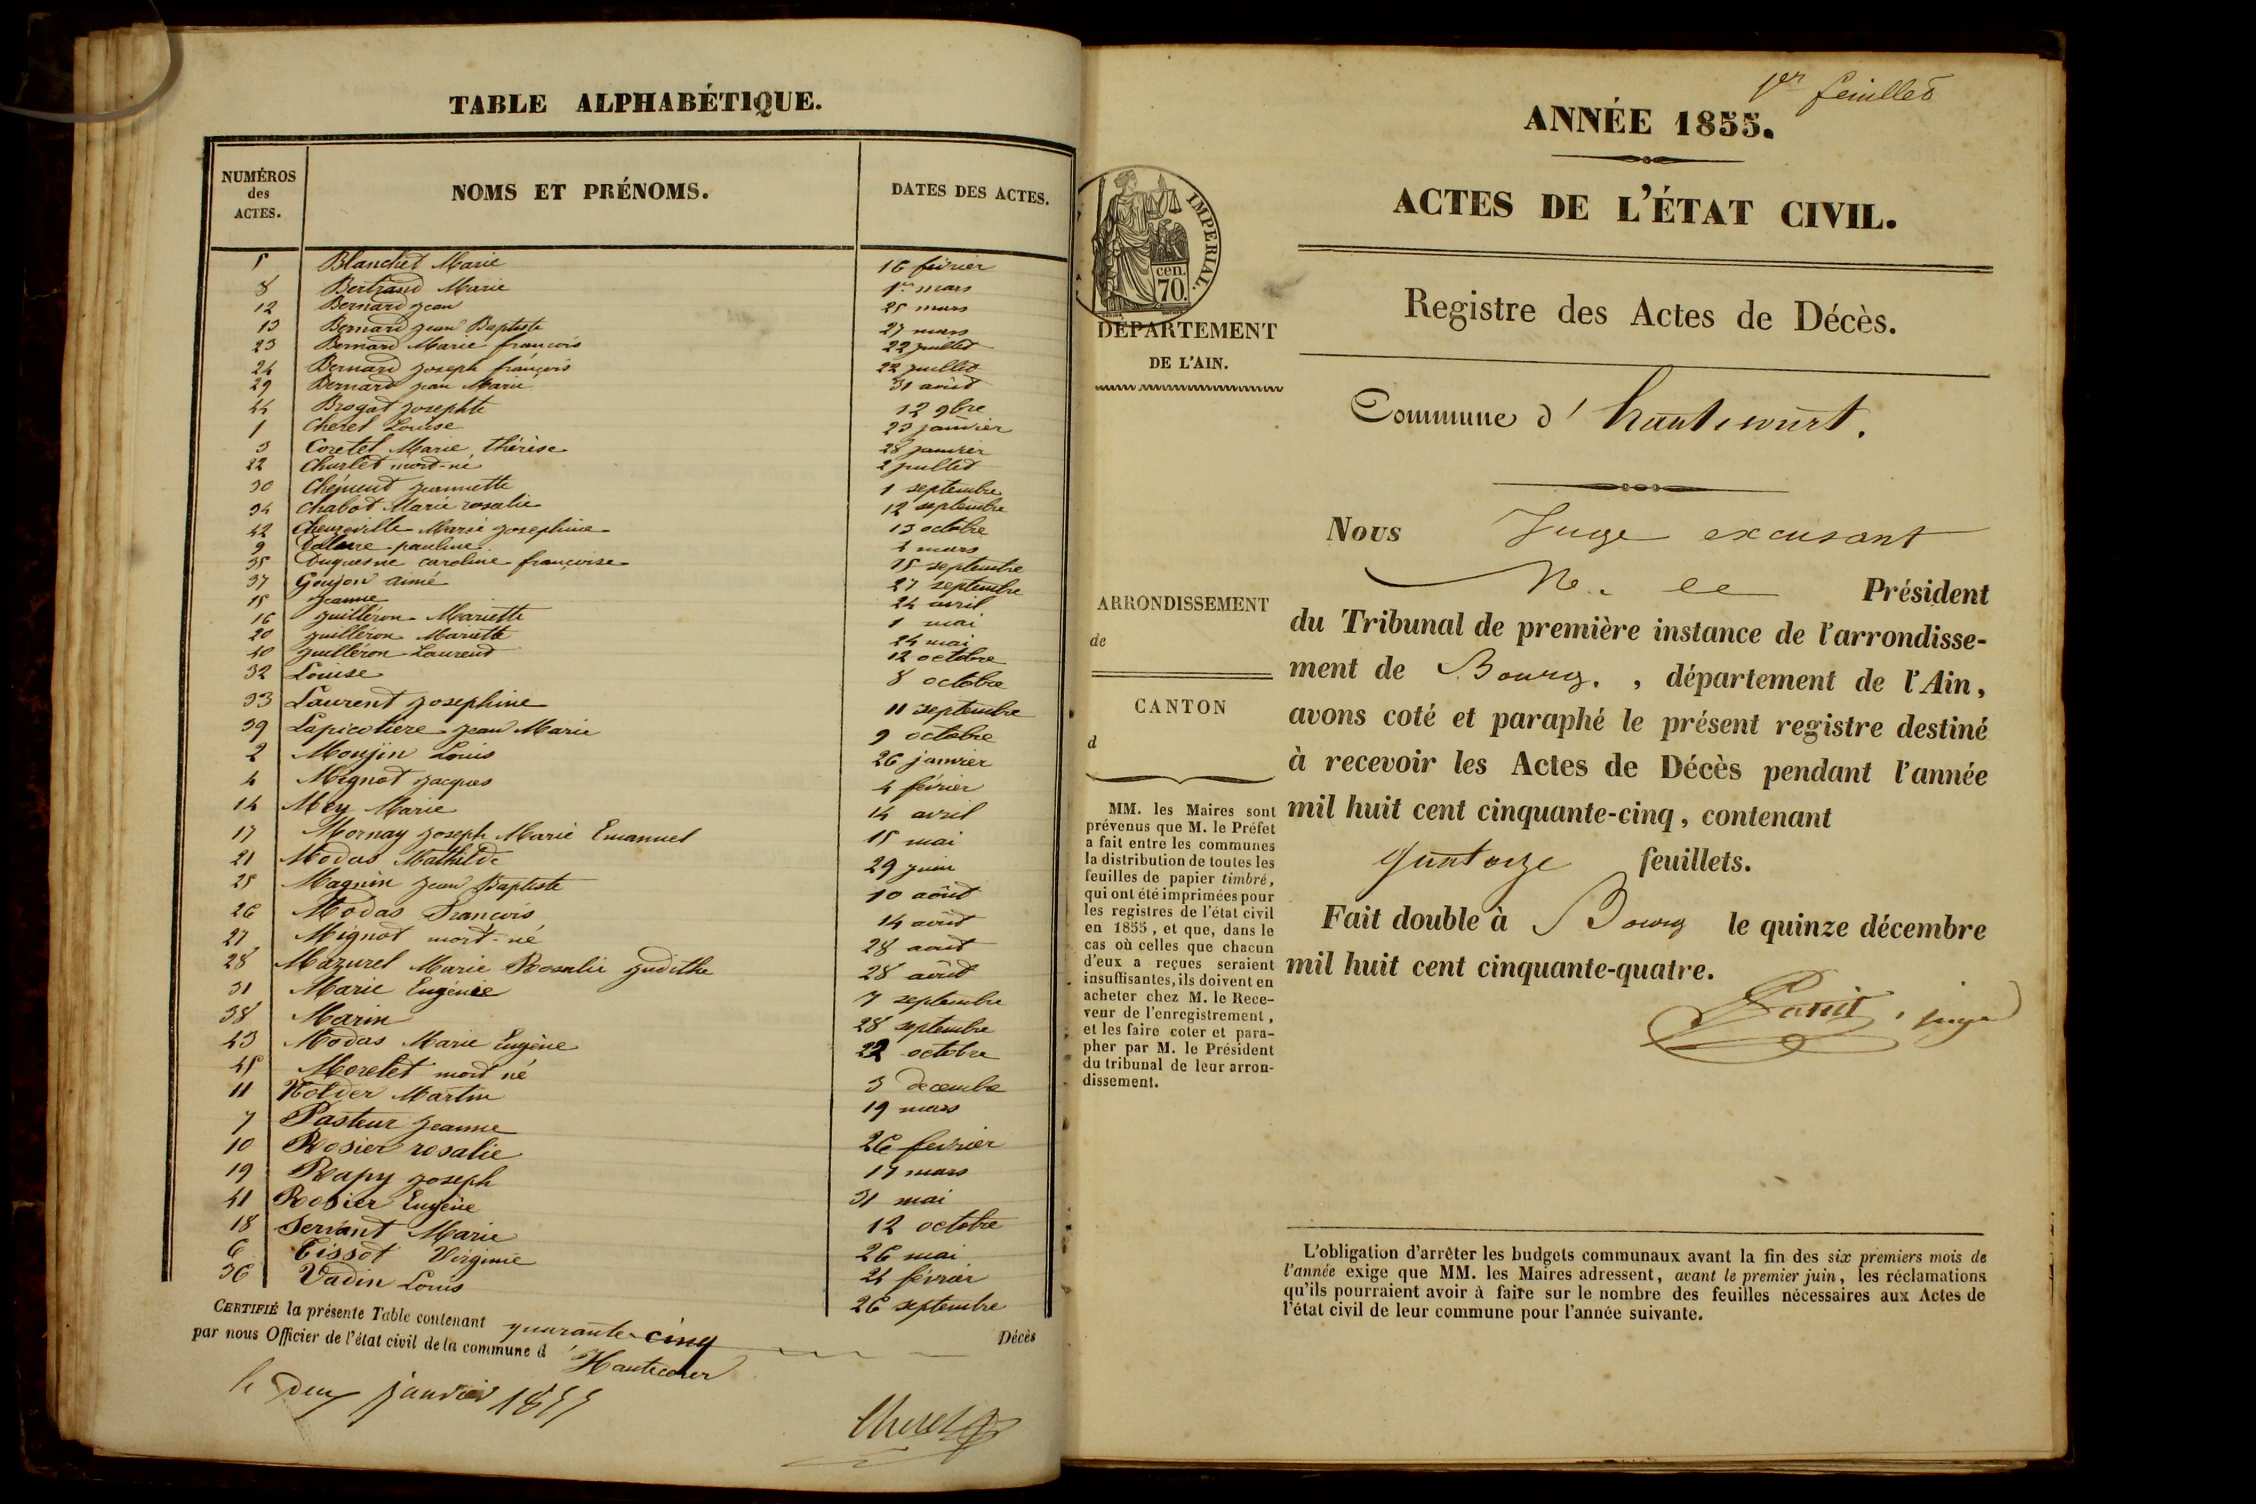 TABLE ALPHABÉTIQUE.
NUMÉROS des ACTES. NOMS ET PRÉNOMS. DATES DES ACTES.
5 Blanchet Marie 16 février
8 Bertrand Marie 1er mars
12 Bernard jean 25 mars
13 Bernard jean Baptiste 27 mars
23 Bernard Marie françois 22 juillet
24 Bernard joseph françois 22 juillet
29 Bernard jean Marie 31 août
44 Brogat josephte 12 9bre
1 Cherel Louise 23 janvier
3 Coretel Marie thérèse 28 janvier
22 Churlet mort-né 2 juillet
30 Chément jeannette 1 septembre
34 Chabot Marie rosalie 12 septembre
42 Marie josephine 13 octobre
9 pauline 4 mars
35 Duquesne caroline françoise 15 septembre
37 Goujon aimé 27 septembre
15 jeanne 24 avril
16 guilléron Mariette 1 mai
20 guilléron Mariette 24 mai
40 guilléron Laurent 12 octobre
32 Louise 8 octobre
33 Laurent josephine 11 septembre
39 Lapicotiere jean Marie 9 octobre
2 Monjin Louis 26 janvier
4 Mignot jacques 4 février
14 Mey Marie 14 avril
17 Mornay joseph Marie Emanuel 15 mai
21 Modas Mathilde 29 juin
25 Magnin jean Baptiste 10 août
26 Modas François 14 août
27 Mignot mort-né 28 août
28 Mazurel Marie Rosalie judithe 28 août
31 Marie Eugénie 7 septembre
38 Marin 28 septembre
43 Modas Marie Eugène 22 octobre
45 Morelet mort né 3 decembre
11 Nolder Martin 19 mars
7 Pasteur jeanne 26 fevrier
10 Rosier rosalie 17 mars
19 Rapy joseph 31 mai
41 Rosier Eugène 12 octobre
18 Servant Marie 26 mai
6 Tissot Virginie 24 février
36 Vadin Louis 26 septembre
CERTIFIÉ la présente Table contenant quarante-cinq Décès
par nous Officier de l'état civil de la commune d'Hautecour
le deux janvier 1855
Cherel
1er feuillet
ANNÉE 1855.
ACTES DE L'ÉTAT CIVIL.
IMPERIAL.
cen. 70.
Registre des Actes de Décès.
DÉPARTEMENT
DE L'AIN.
Commune d'hautecourt.
Nous Juge excusant
M. le Président
du Tribunal de première instance de l'arrondisse-
ment de Bourg. , département de l'Ain,
avons coté et paraphé le présent registre destiné
à recevoir les Actes de Décès pendant l'année
mil huit cent cinquante-cinq, contenant
quatorze feuillets.
Fait double à Bourg le quinze décembre
mil huit cent cinquante-quatre.
juge
ARRONDISSEMENT
de
CANTON
d
MM. les Maires sont
prévenus que M. le Préfet
a fait entre les communes
la distribution de toutes les
feuilles de papier timbré,
qui ont été imprimées pour
les registres de l'état civil
en 1855, et que, dans le
cas où celles que chacun
d'eux a reçues seraient
insuffisantes, ils doivent en
acheter chez M. le Rece-
veur de l'enregistrement,
et les faire coter et para-
pher par M. le Président
du tribunal de leur arron-
dissement.
L'obligation d'arrêter les budgets communaux avant la fin des six premiers mois de
l'année exige que MM. les Maires adressent, avant le premier juin, les réclamations
qu'ils pourraient avoir à faire sur le nombre des feuilles nécessaires aux Actes de
l'état civil de leur commune pour l'année suivante.